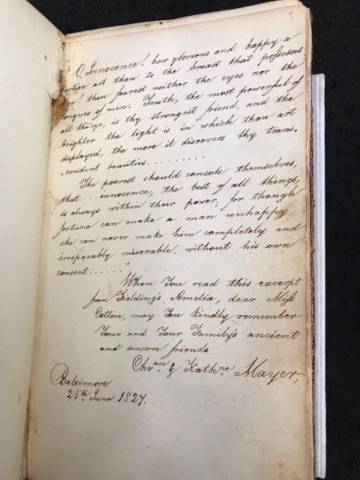 O, Innocence! how glorious and happy a
portion art thou to the breast that possesses
thee! thou fearest neither the eyes nor the
tongues of men. Truth, the most powerful of
all things, is thy strongest friend, and the
brighter the light is in which thou art
displayed, the more it discovers thy trans.
cendent beauties.........
The poorest should console themselves,
that... innocence, the best of all things,
is always within their power, for though
fortune can make a man unhappy
she can never make him completely and
irreparably miserable, without his own
consent.......
When You read this excerpt
from Fielding's Amelia, dear Miss
Cotton, may You kindly remember
Your and Your Family's ancient
and sincere friends
Chr.an & Kath.ne Mayer,
Baltimore
25th June 1827.